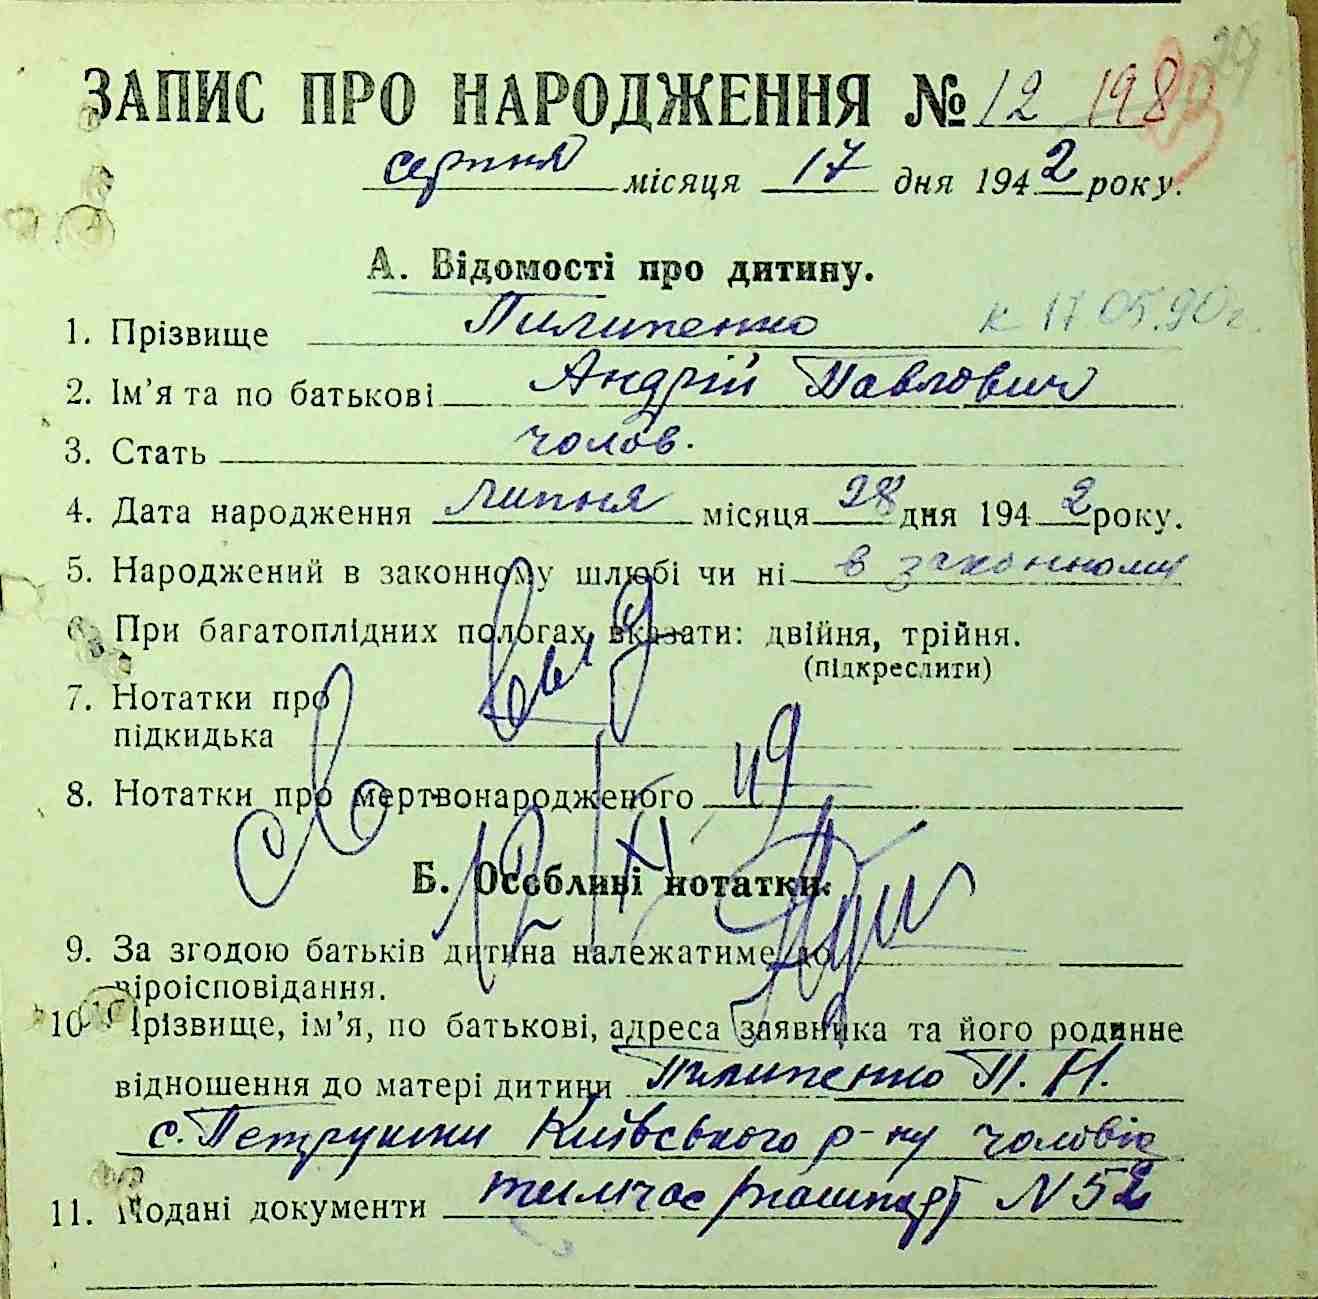 ЗАПИС ПРО НАРОДЖЕННЯ № 12 198
серпня місяця 17 дня 1942 року.
А. Відомості про дитину.
к 17 05.90г.
1. Прізвище Пилипенко
2. Ім'я та по батькові Андрій Павлович
3. Стать чолов.
4. Дата народження липня місяця 28 дня 1942 року.
5. Народжений в законному шлюбі чи ні в законному
6. При багатоплідних пологах вказати: двійня, трійня.
(підкреслити)
7. Нотатки про
підкидька
8. Нотатки про мертвонародженого
Б. Особливі нотатки.
9. За згодою батьків дитина належатиме до
віроісповідання.
10. Прізвище, ім'я, по батькові, адреса заявника та його родинне
відношення до матері дитини Пилипенко П. Н.
с. Петрушки Київського р-ну чоловік
11. Подані документи тимчас пашпорт N 52